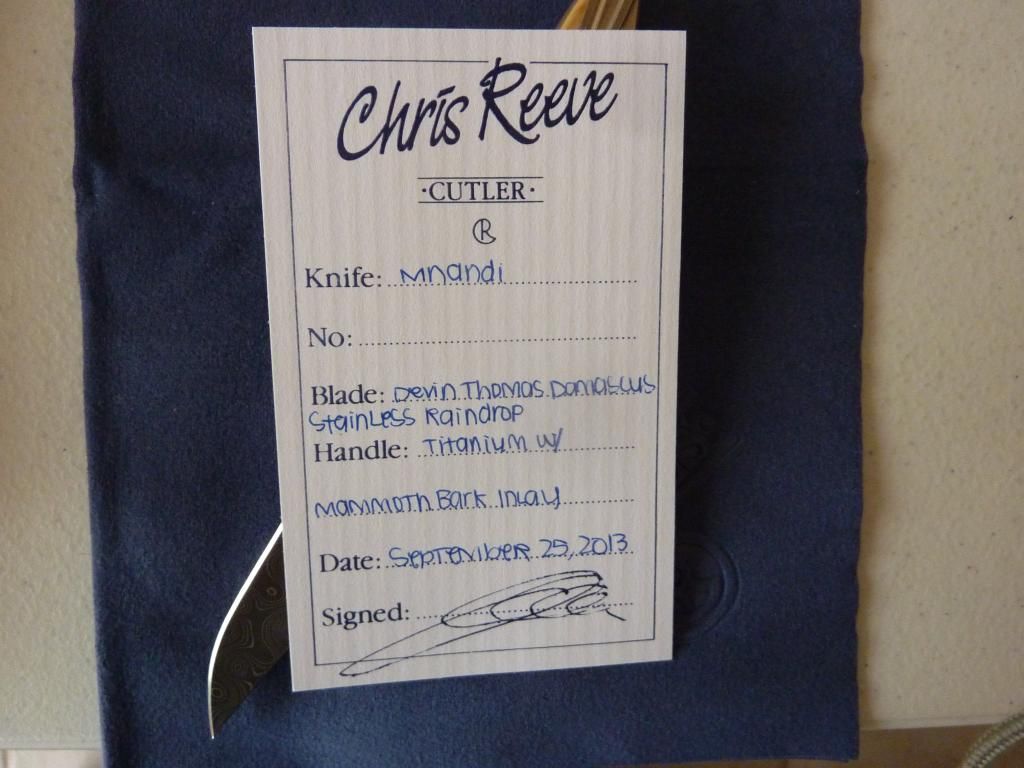 Chris Reeve
·CUTLER·
R
Knife: Mnandi
No:
Blade: Devin Thomas Damascus
Stainless Raindrop
Handle: Titanium w/
Mammoth Bark Inlay
Date: September 25, 2013
Signed: